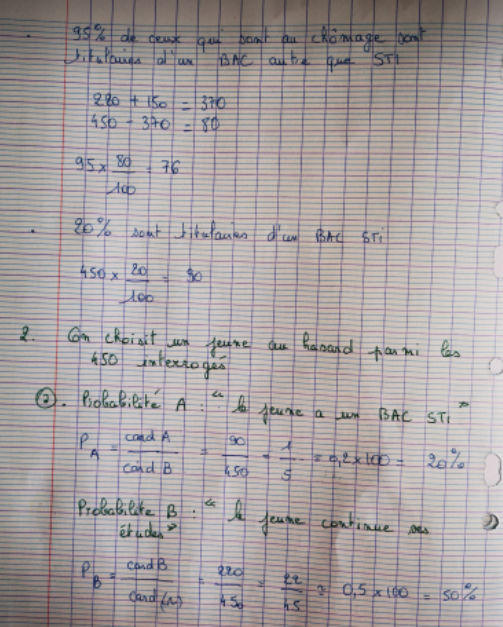 . 95% de ceux qui sont au chômage sont
titulaires d'un BAC autre que STI
220 + 150 = 370
450 - 370 = 80
95 × 80/100 = 76
. 20% sont titulaires d'un BAC STI
450 × 20/100 = 90
2. On choisit un jeune au hasard parmi les
450 interrogés
② . Probabilité A : " le jeune a un BAC STI "
P_A = card A / card B = 90/450 = 1/5 = 0,2×100 = 20%
Probabilité B : " le jeune continue ses
études "
P_B = card B / card (Ω) = 220/450 = 22/45 = 0,5 × 100 = 50%